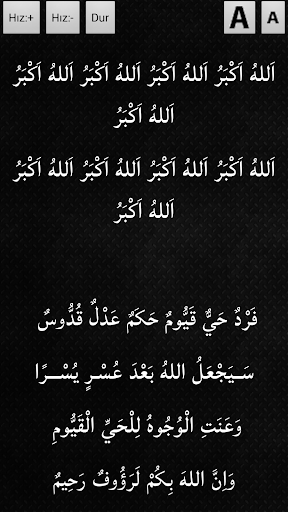 Hız:+ Hız:- Dur A A
اَللهُ اَكْبَرُ اَللهُ اَكْبَرُ اَللهُ اَكْبَرُ اَللهُ اَكْبَرُ
اَللهُ اَكْبَرُ
اَللهُ اَكْبَرُ اَللهُ اَكْبَرُ اَللهُ اَكْبَرُ اَللهُ اَكْبَرُ
اَللهُ اَكْبَرُ
فَرْدٌ حَيٌّ قَيُّومٌ حَكَمٌ عَدْلٌ قُدُّوسٌ
سَـيَجْعَلُ اللهُ بَعْدَ عُسْـرٍ يُسْـــرًا
وَعَنَتِ الْوُجُوهُ لِلْحَيِّ الْقَيُّومِ
وَاِنَّ اللهَ بِكُمْ لَرَؤُوفٌ رَحِيمٌ